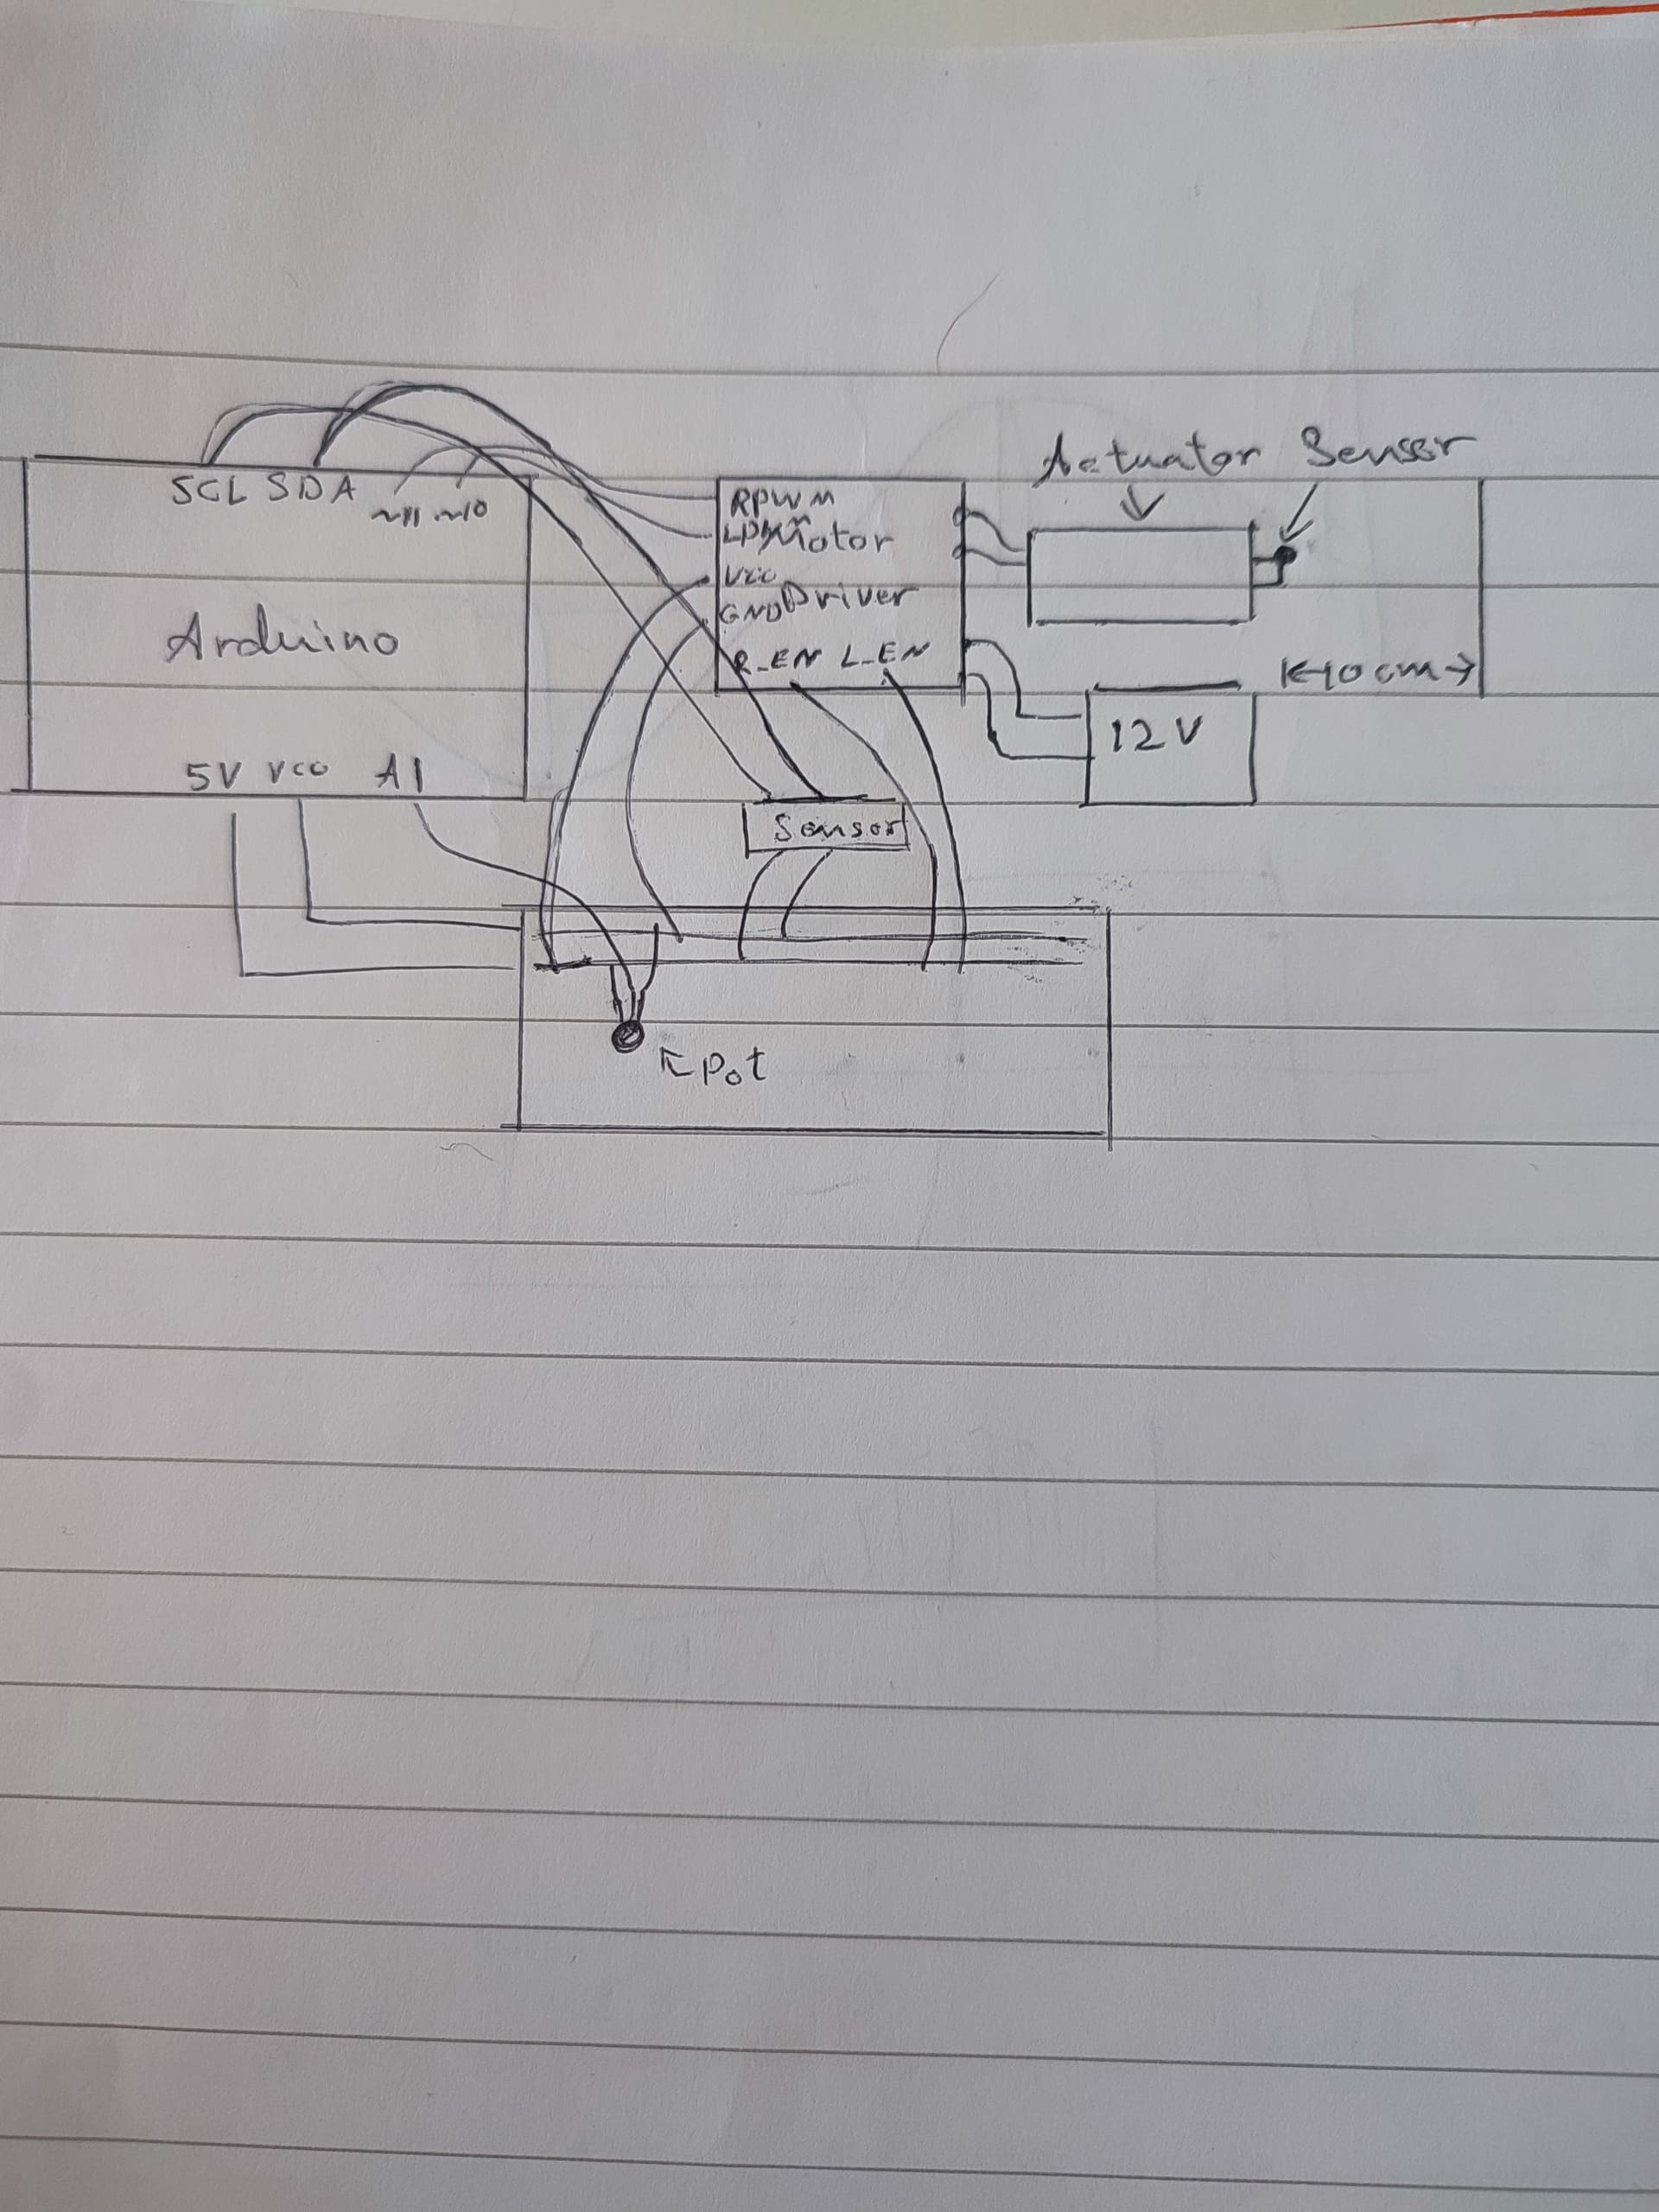 Actuator Sensor
SCL SDA ~11 ~10
RPWM
LPWM Motor
VCC
GND Driver
R_EN L_EN
Arduino
10cm
12V
5V VCC A1
Sensor
Pot